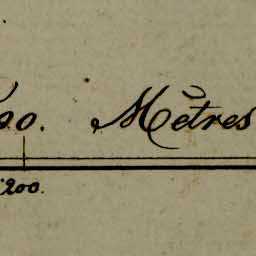 00. Mètres
200.